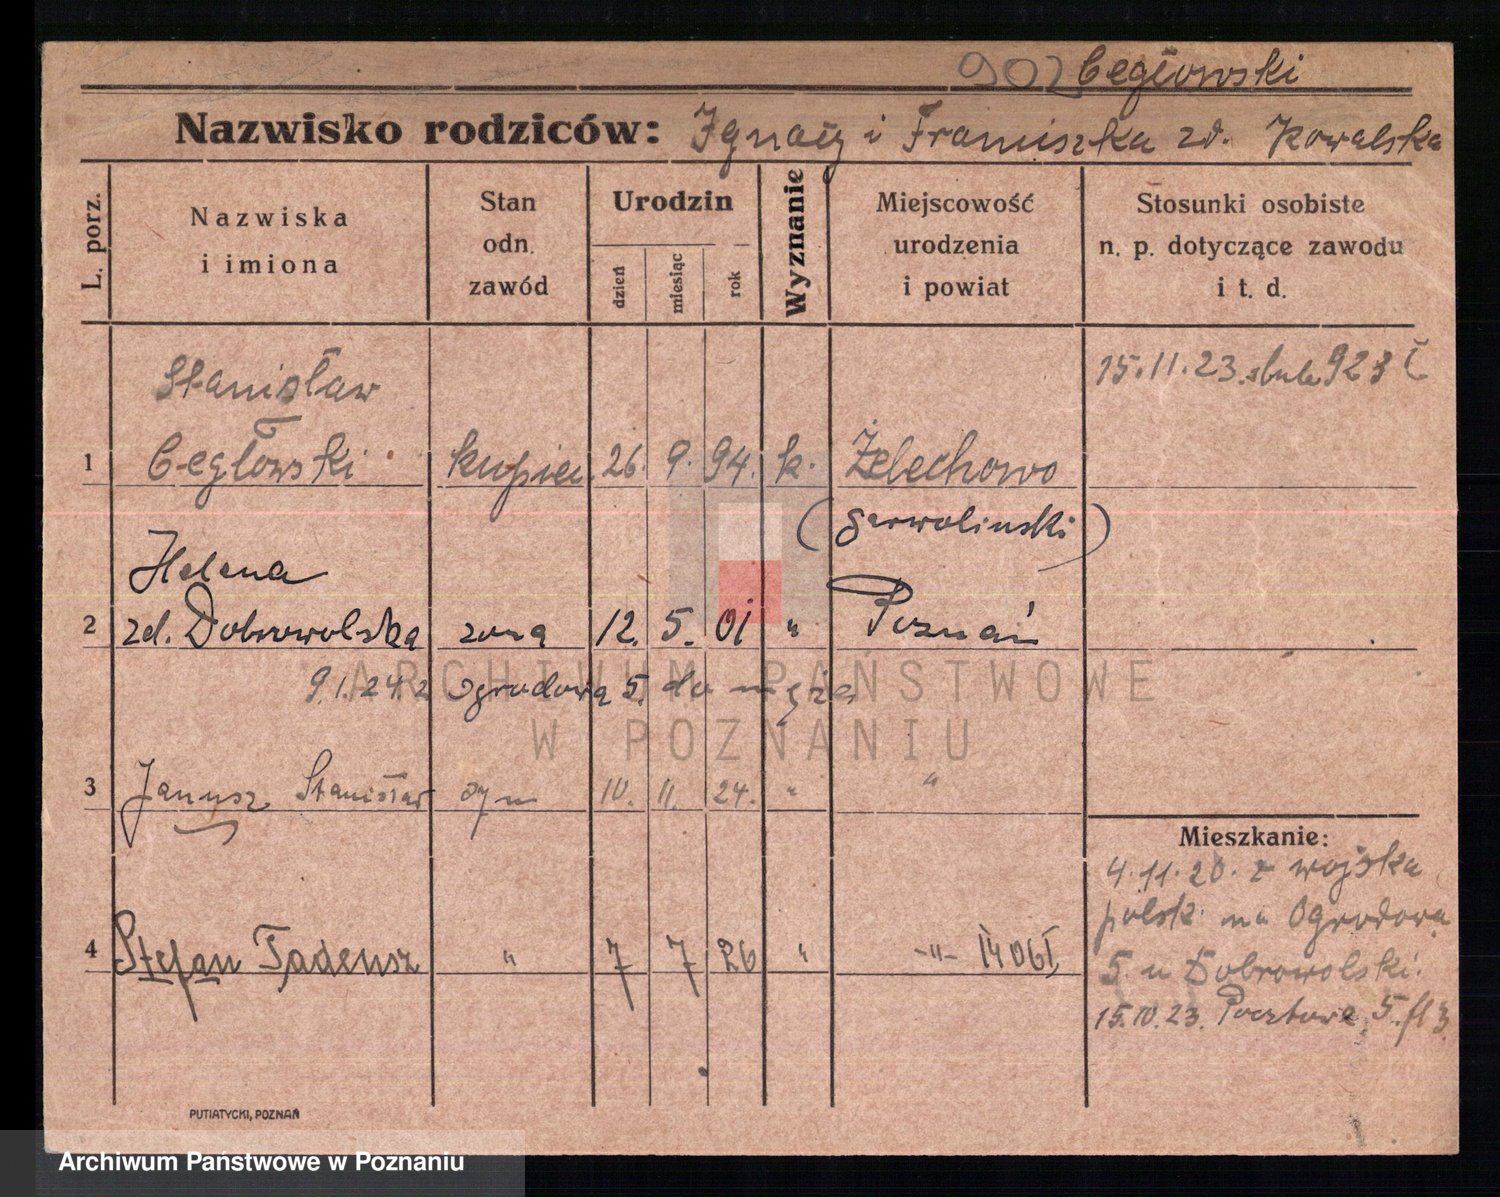 902 Cegłowski
Nazwisko rodziców: Ignacy i Franciszka zd. Kowalska
L. porz.
Nazwiska
i imiona
Stan
odn.
zawód
Urodzin
dzień
miesiąc
rok
Wyznanie
Miejscowość
urodzenia
i powiat
Stosunki osobiste
n. p. dotyczące zawodu
i t. d.
15.11.23. 923
Stanisław
1 Cegłowski kupiec 26. 9. 94. k. Żelechowo
(garwolinski)
Helena
2 zd. Dobrowolska żona 12. 5. 01 " Poznań
9.1.24. z Ogrodowa 5. do męża
3 Janusz Stanisław syn 10. 11. 24. " "
4 Stefan Tadeusz " 7 7 26 " -"- 1406
Mieszkanie:
4.11.20. z wojska
polsk. na Ogrodowa
5 u Dobrowolski.
15.10.23. Pocztowa 5.
PUTIATYCKI, POZNAŃ
ARCHIWUM PAŃSTWOWE
W POZNANIU
Archiwum Państwowe w Poznaniu